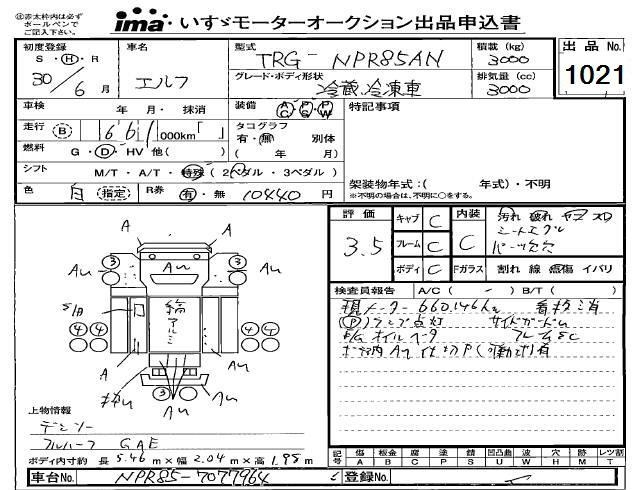 ㊟赤太枠内は必ず
ボールペンで
ご記入下さい。
ima いすゞモーターオークション出品申込書
初度登録
S・H・R
30/6月
車名
エルフ
型式
TRG-NPR85AN
グレード・ボディ形状
冷蔵冷凍車
積載(kg)
3000
排気量(cc)
3000
出品No.
1021
車検 年・月・抹消
装備 AC PS PW
特記事項
走行 B 661000km「 」
タコグラフ
有・無 別体
( 年 月)
燃料 G・D・HV 他( )
シフト M/T・A/T・特殊(2ペダル・3ペダル)
架装物年式:( 年式)・不明
※不明の場合は、不明に○をする。
色 白 (指定) R券 有・無 10440円
評価
3.5
キャブ C
フレーム C
ボディ C
内装
C
汚れ 破れ ヤブ スロ
シートスグレ
パーツ欠穴
Fガラス 割れ 線 点傷 イバリ
検査員報告 A/C( - ) B/T( )
現メーター 660,146km 看板ミ消
Pランプ点灯 サイドガードム
E/Gオイルベタ フレームSC
ボデ内 AU 仕切P(可動式)有
A
A
A
A
A
A
3
3
3
3
AU
AU
AU
AU
S/A
4
4
4
4
輪
アルミ
キレU
上物情報
デンソー
フルハーフ GAE
ボディ内寸約 長5.46m×幅2.04m×高1.95m
記号 傷 板金 腐 塗 錆 凹凸曲 波 穴 跡 レンズ割
A B C P S U W H M T
車台No. NPR85-7077964
登録No.